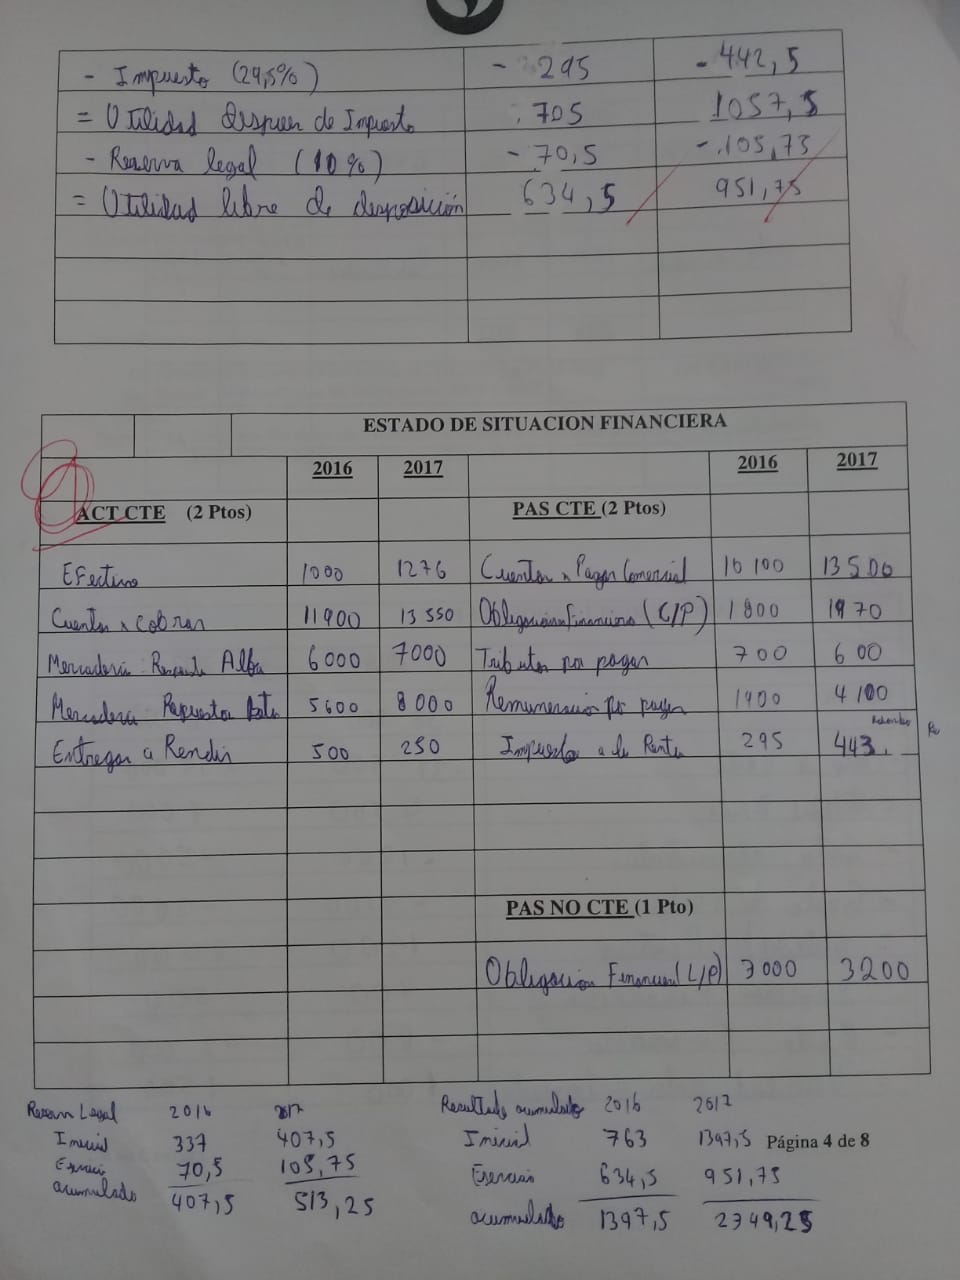 - Impuesto (29,5%) - 295 - 442,5
= Utilidad despues de Impuesto 705 1057,5
- Reserva legal (10%) - 70,5 - 105,75
= Utilidad libre de disposición 634,5 951,75
ESTADO DE SITUACION FINANCIERA
2016 2017 2016 2017
ACT CTE (2 Ptos) PAS CTE (2 Ptos)
Efectivo 1000 1276 Cuentas x Pagar Comercial 10 100 13 500
Cuentas x cobrar 11900 13 550 Obligaciones Financieras (C/P) 1800 1970
Mercaderia Repuesto Alfa 6000 7000 Tributos por pagar 700 600
Mercaderia Repuestos Beta 5600 8000 Remuneracion por pagar 1900 4100
Entregas a Rendir 500 250 Impuesto a la Renta 295 443
PAS NO CTE (1 Pto)
Obligacion Financiera (L/P) 3000 3200
Reserva Legal 2016 2017 Resultado acumulado 2016 2017
Inicial 337 407,5 Inicial 763 1397,5
Página 4 de 8
Ejercicio 70,5 105,75 Ejercicio 634,5 951,75
acumulado 407,5 513,25 acumulado 1397,5 2349,25